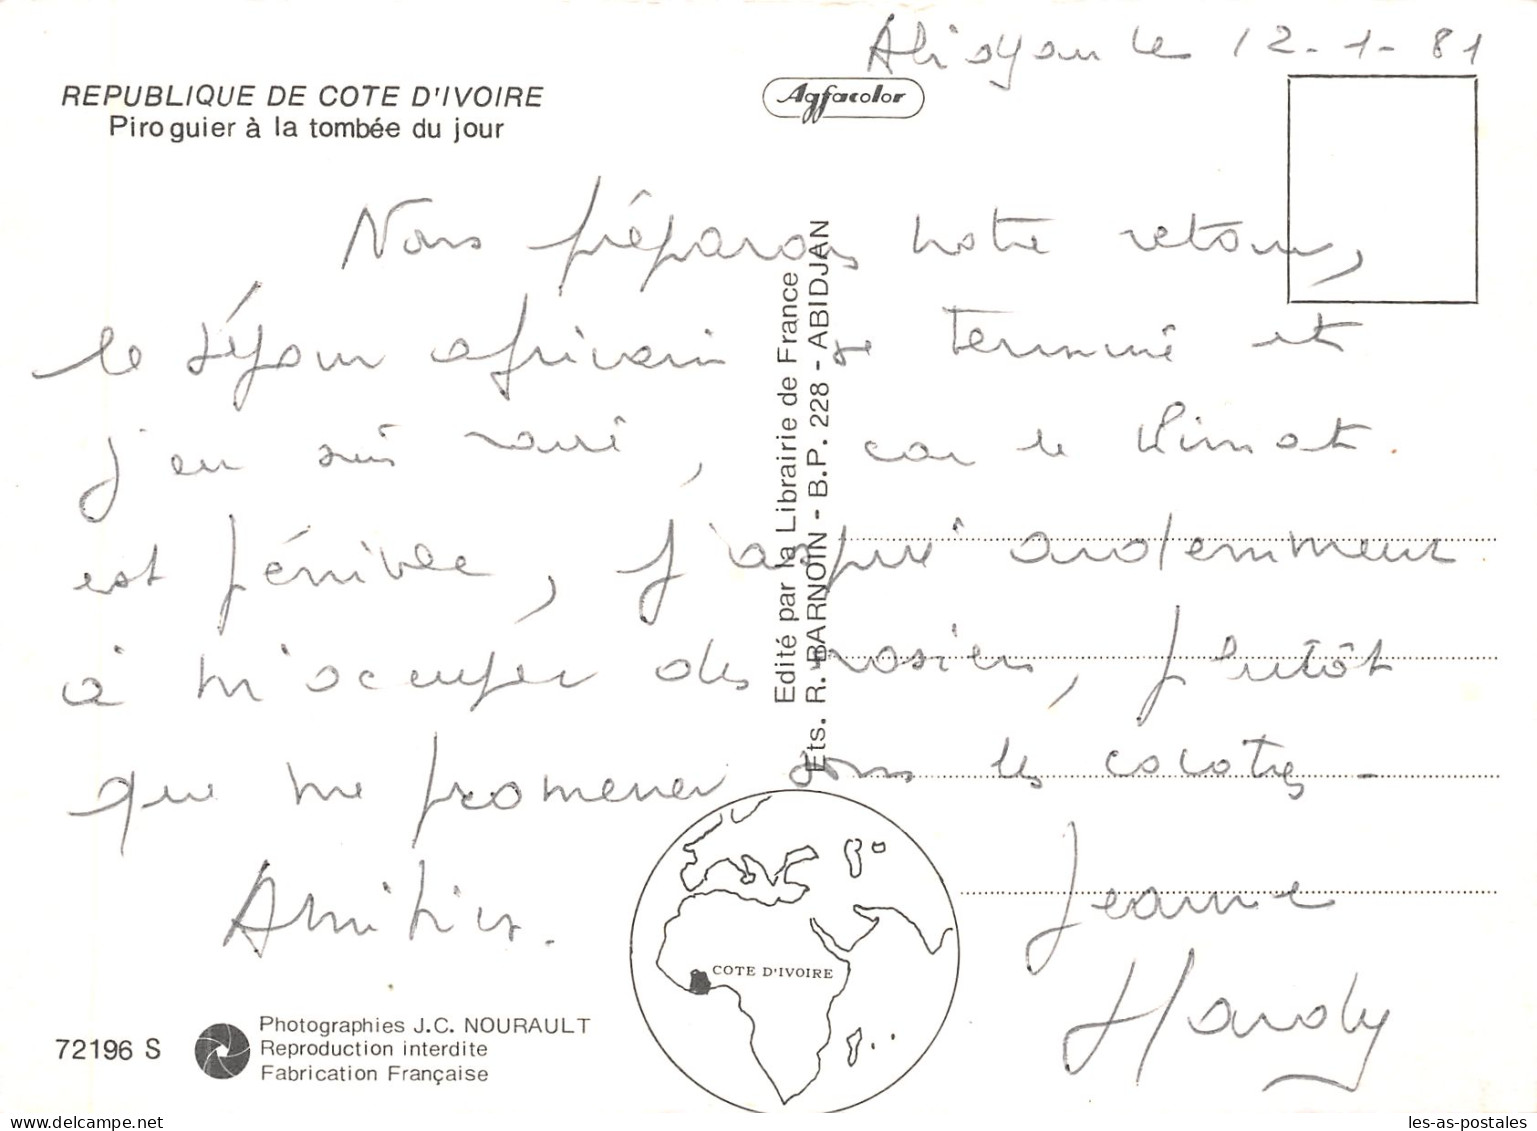 Abidjan le 12-1-81
REPUBLIQUE DE COTE D'IVOIRE
Piroguier à la tombée du jour
Agfacolor
Nous préparons notre retour,
le séjour africain se termine et
j'en suis ravie, car le climat
est pénible, j'aspire ardemment
à m'occuper des rosiers, plutôt
que me promener sous les cocotiers -
Amitiés.
Jeanne
Hardy
Edité par la Librairie de France
Ets. R. BARNOIN - B.P. 228 - ABIDJAN
COTE D'IVOIRE
72196 S
Photographies J.C. NOURAULT
Reproduction interdite
Fabrication Française
les-as-postales